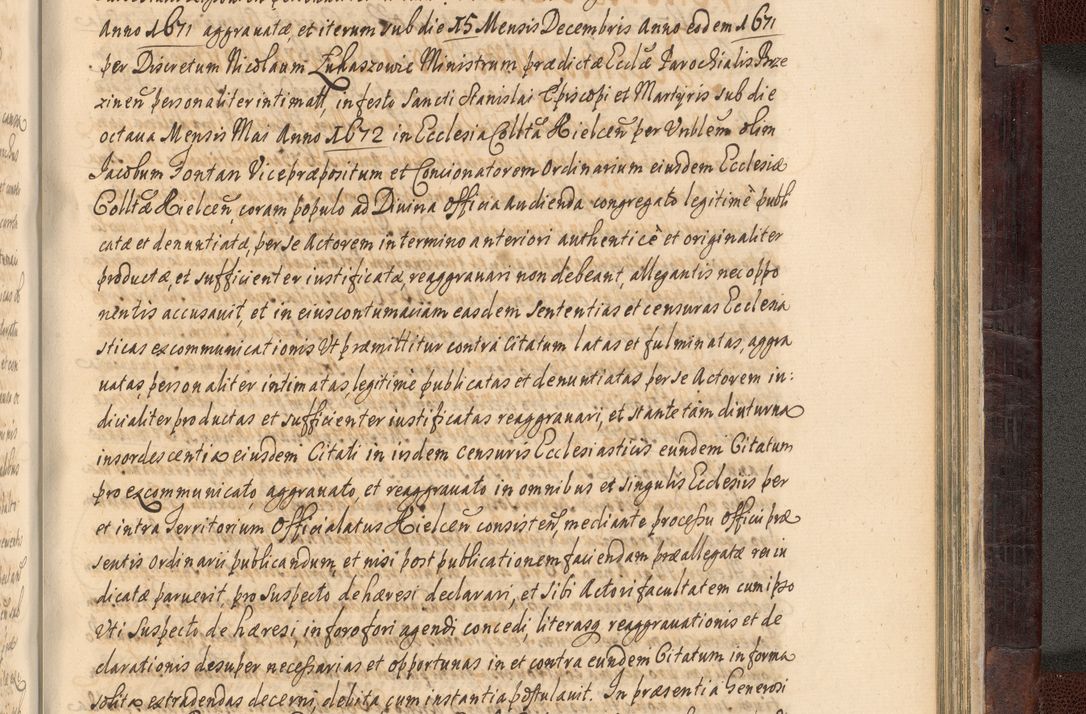 Anno 1671 aggrauatæ, et iterum sub die 15 Mensis Decembris Anno eodem 1671
per Discretum Nicolaum Lukaszowic Ministrum prædictæ Ecclæ Parochialis Brze
zinen̄ personaliter intimatæ, in festo Sancti Stanislai Episcopi et Martyris sub die
octaua Mensis Mai Anno 1672 in Ecclesia Colltã Kielcen̄ per Vnblem olim
Jacobum Fontan Vicepræpositum et Concionatorem Ordinarium eiusdem Ecclesiæ
Colltæ Kielcen̄, coram populo ad Diuina Officia audienda congregato legitimè publi
catæ et denuntiatæ, per se Actorem in termino anteriori authenticè et originaliter
productæ, et sufficienter iustificatæ, reaggrauari non debeant, allegantis nec oppo
nentis accusauit, et in eius contumaciam easdem Sententias et censuras Ecclesia
sticas excommunicationis Vt præmittitur contra Citatum latas et fulminatas, aggra
uatas, personaliter intimatas, legitimè publicatas et denuntiatas per se Actorem in:
dicialiter productas et sufficienter iustificatas reaggrauari, et stante tam diuturna
insordescentia eiusdem Citati in iisdem censuris Ecclesiasticis eundem Citatum
pro excommunicato, aggrauato, et reaggrauato in omnibus et singulis Ecclesiis per
et intra Territorium Officialatus Kielcen̄ consisten̄, mediante processu Officii præ
sentis Ordinarii publicandum, et nisi post publicationem faciendam præallegatæ rei iu
dicatæ paruerit, pro Suspecto de hæresi declarari, et Sibi Actori facultatem cum ipso
Vti Suspecto de hæresi, in foro fori agendi concedi, literasq reaggrauationis et de
clarationis desuper necessarias et opportunas in et contra eundem Citatum in forma
solita extradendas decerni, debita cum instantia postulauit. In præsentia Generosi